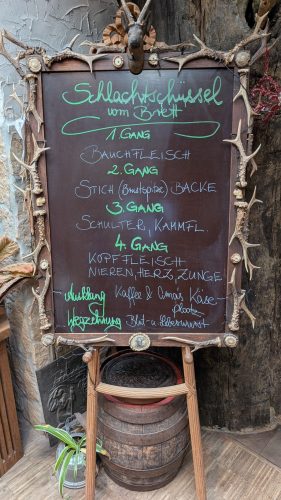 Schlachtschüssel
vom Brett
1. GANG
BAUCHFLEISCH
2. GANG
STICH (Brustspitze) BACKE
3. GANG
SCHULTER, KAMMFL.
4. GANG
KOPFFLEISCH
NIEREN, HERZ, ZUNGE
Ausklang Kaffee & Omas Käse-
platz
Wegzehrung Blut- u. Leberwurst